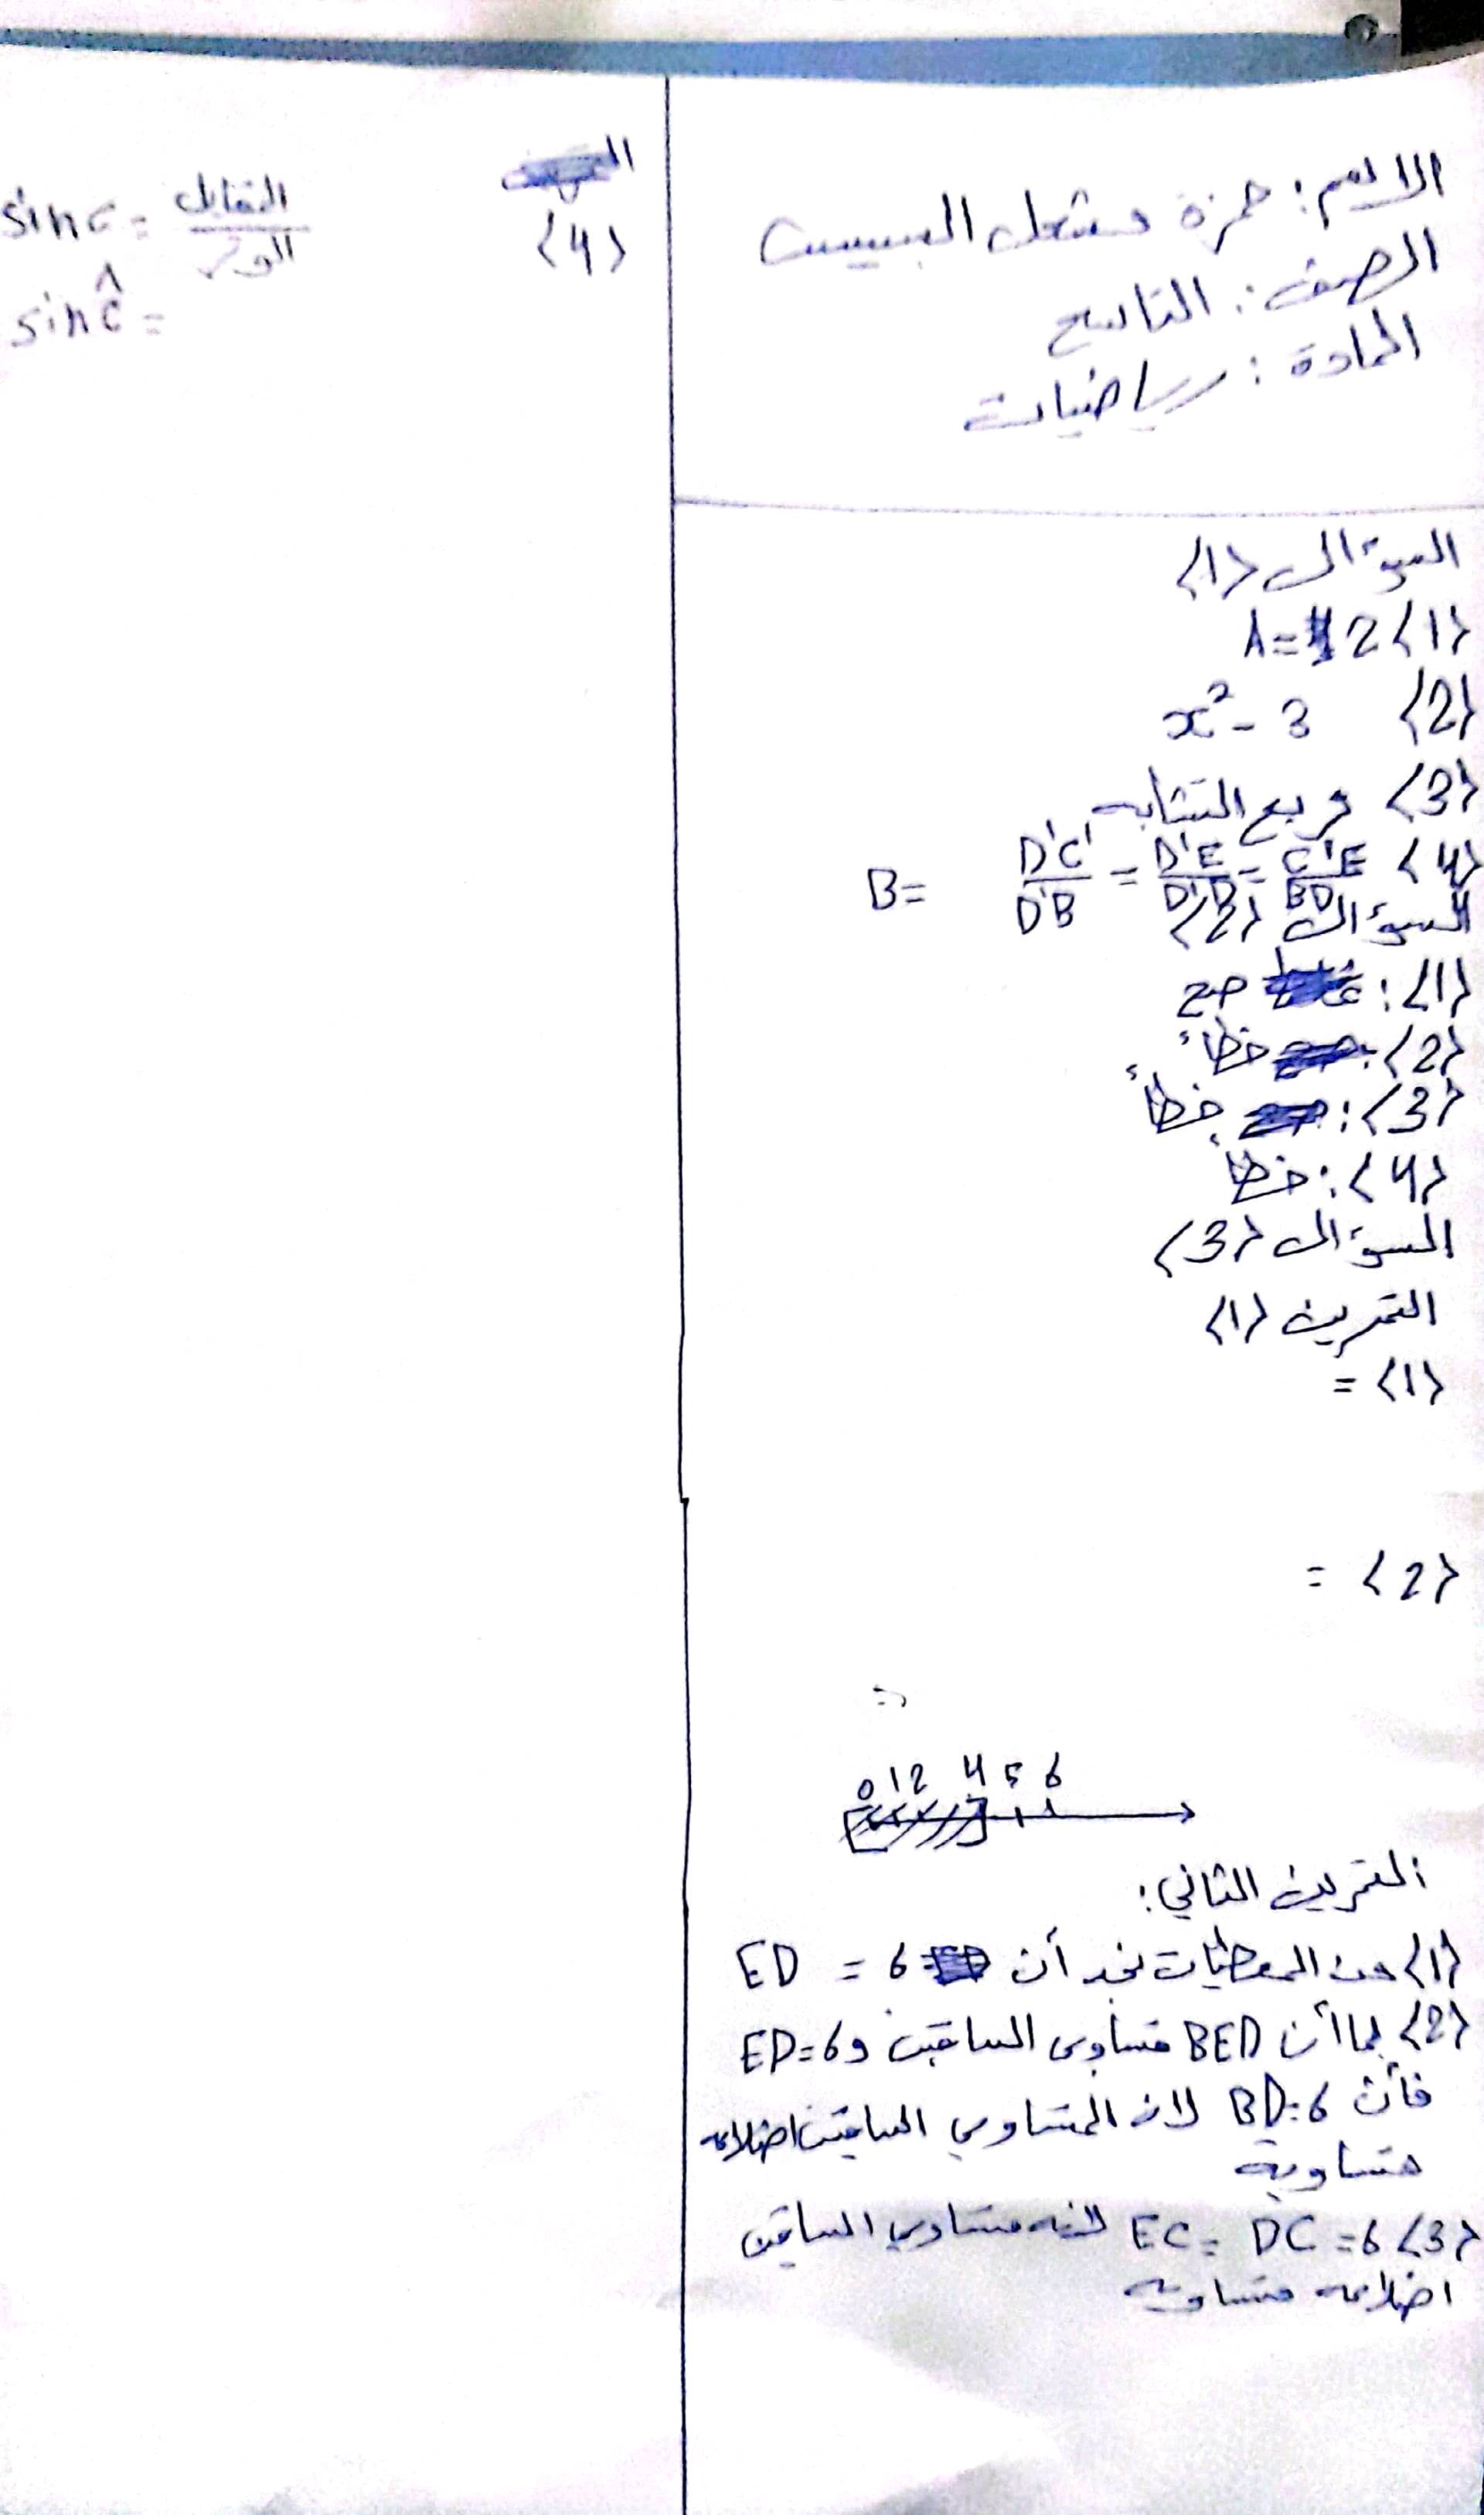 الاسم: حمزة مشعل
الصف: التاسع
المادة: رياضيات
السؤال <1>
<1> A = 2
<2> x² - 3
<3> مربع التشابه
<4> B = D'C'/D'B = D'E/D'D = C'E/BD
السؤال <2>
<1>: صح
<2>: خطأ
<3>: خطأ
<4>: خطأ
السؤال <3>
التمرين <1>
<1> =
<2> =
0 1 2 4 5 6
التمرين الثاني:
<1> من المعطيات نجد أن ED = 6
<2> بما أن BED متساوي الساقين و ED=6
فأن BD=6 لان المتساوي الساقين اضلاعه
متساوية
<3> EC = DC = 6 لانه متساوي الساقين
اضلاعه متساويه
<4>
sin c = المقابل/الوتر
sin ĉ =